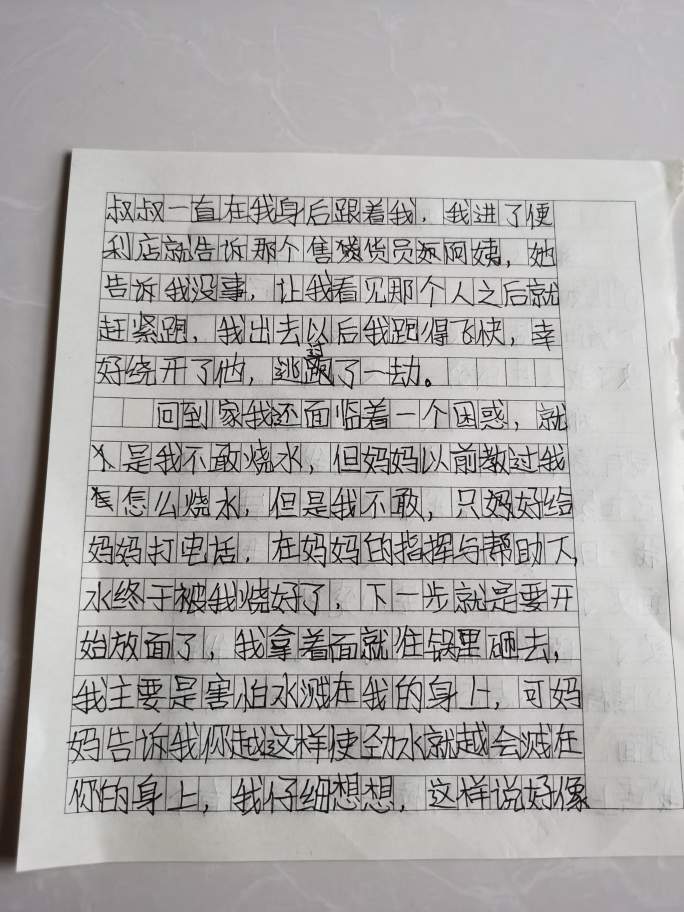 叔叔一直在我身后跟着我，我进了便
利店就告诉那个售货员阿姨，她
告诉我没事，让我看见那个人之后就
赶紧跑，我出去以后我跑得飞快，幸
好绕开了他，逃过了一劫。
回到家我还面临着一个困惑，就
是我不敢烧水，但妈妈以前教过我
怎么烧水，但是我不敢，只妈好给
妈妈打电话，在妈妈的指挥与帮助下，
水终于被我烧好了，下一步就是要开
始放面了，我拿着面就往锅里砸去，
我主要是害怕水溅在我的身上，可妈
妈告诉我你越这样使劲水就越会溅在
你的身上，我仔细想想，这样说好像